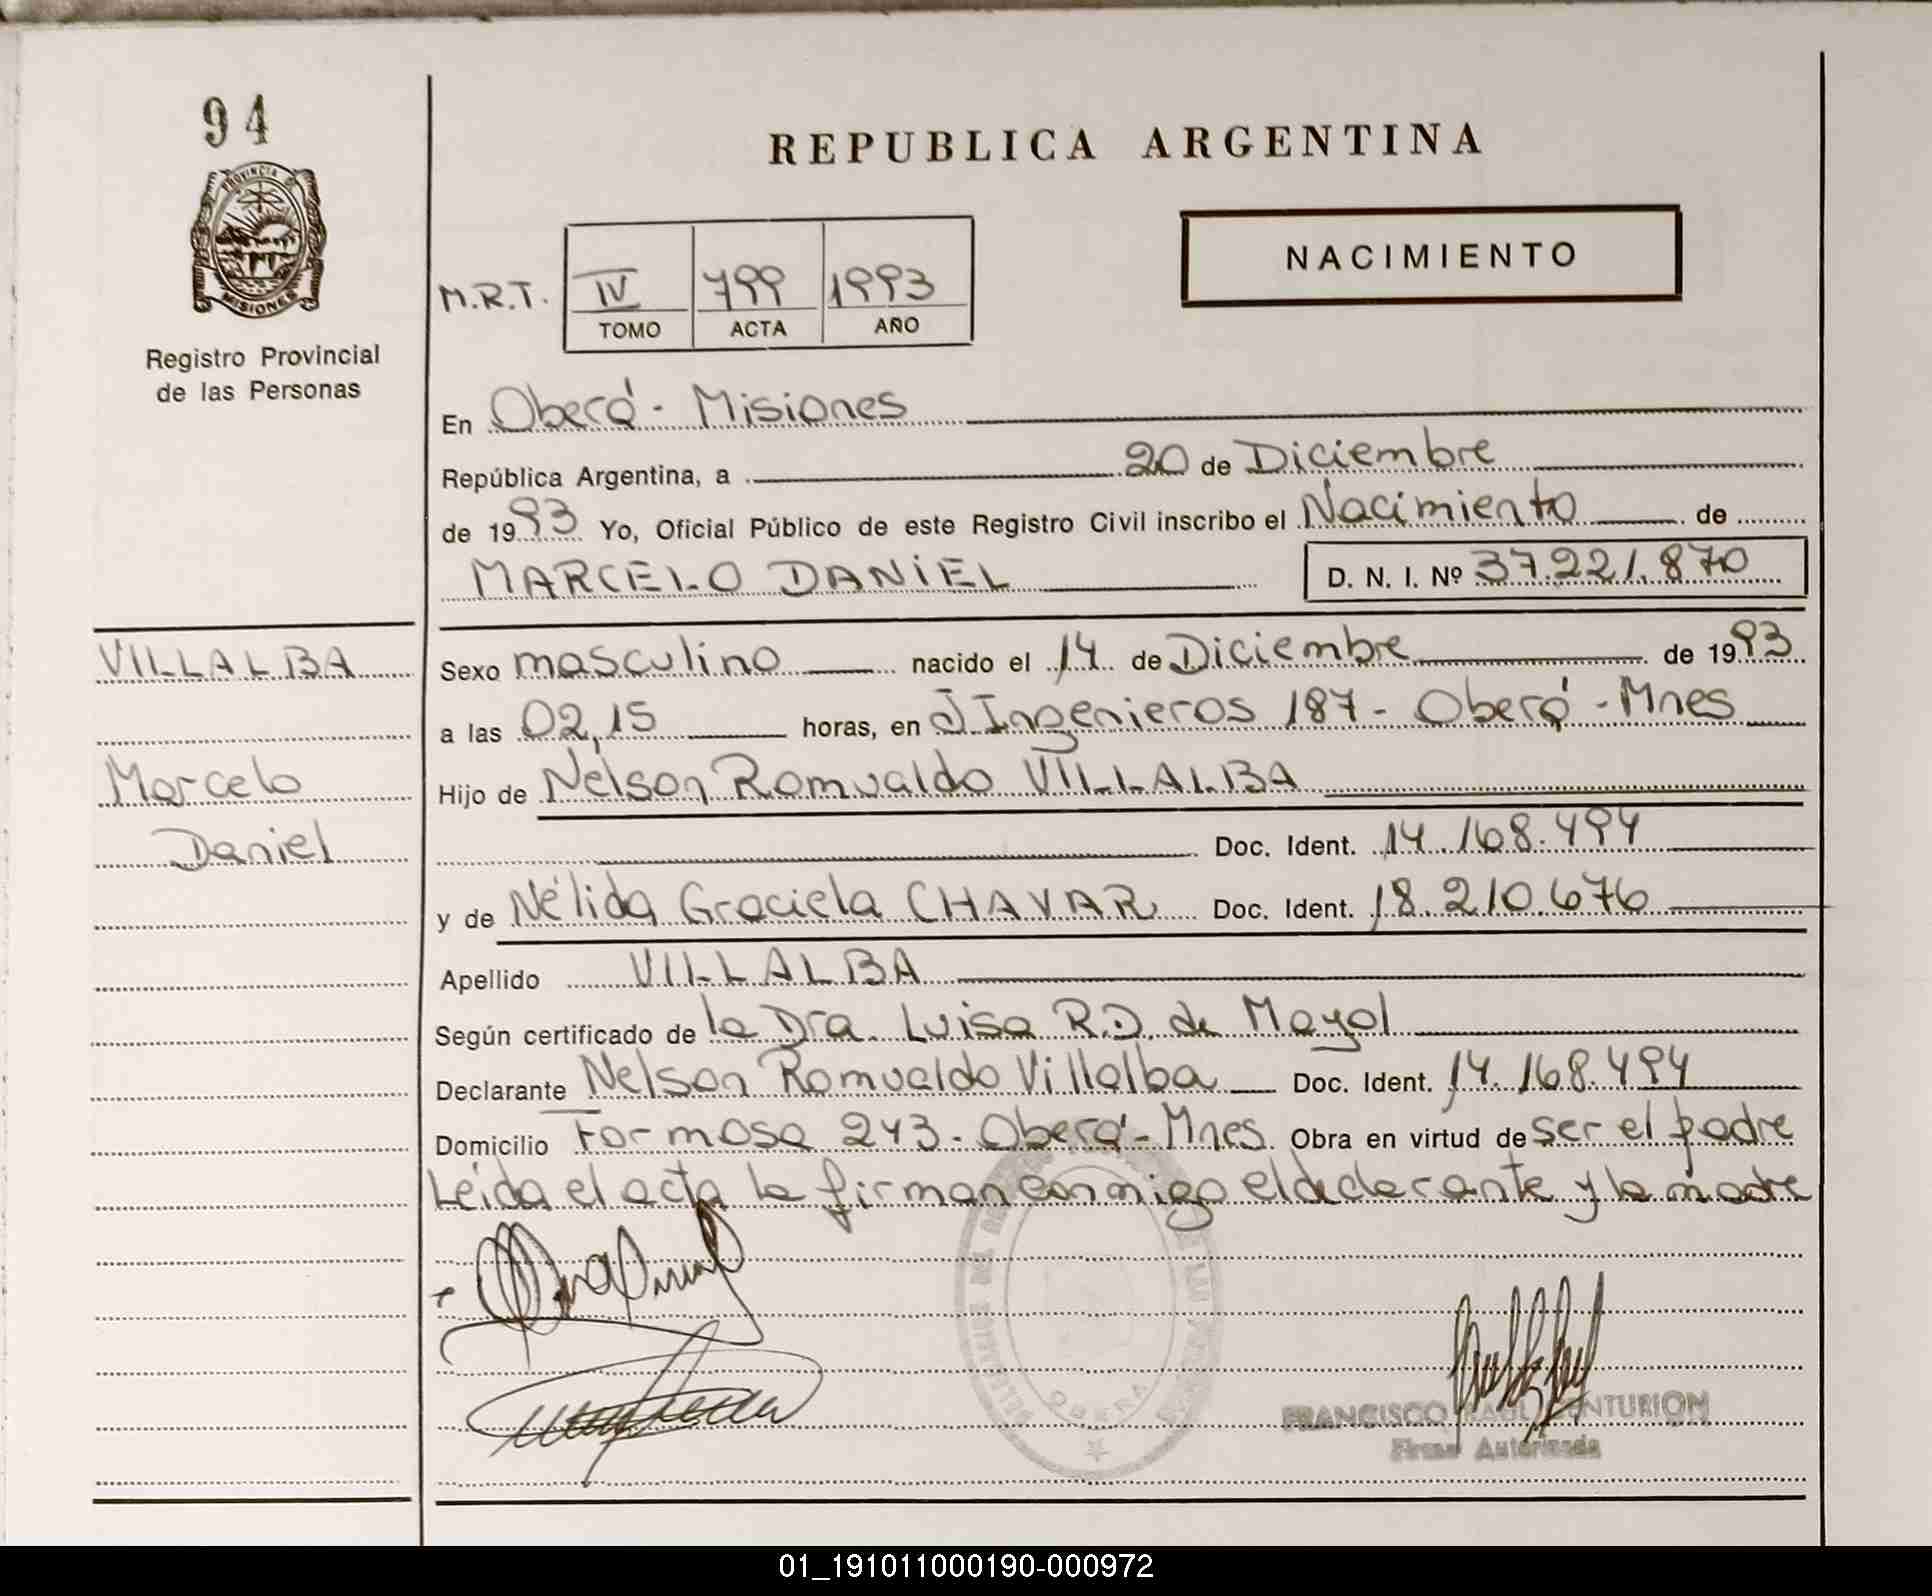 94
PROVINCIA DE
MISIONES
Registro Provincial
de las Personas
REPUBLICA ARGENTINA
NACIMIENTO
M.R.T. IV 799 1993
TOMO ACTA AÑO
En Oberá - Misiones
República Argentina, a 20 de Diciembre
de 1993 Yo, Oficial Público de este Registro Civil inscribo el Nacimiento de
MARCELO DANIEL D. N. I. Nº 37.221.870
VILLALBA
Marcelo
Daniel
Sexo masculino nacido el 14 de Diciembre de 1993
a las 02,15 horas, en J Ingenieros 187 - Oberá - Mnes
Hijo de Nelson Romualdo VILLALBA
Doc. Ident. 14.168.494
y de Nélida Graciela CHAVAR Doc. Ident. 18.210.676
Apellido VILLALBA
Según certificado de la Dra. Luisa R.D. de Mayol
Declarante Nelson Romualdo Villalba Doc. Ident. 14.168.494
Domicilio Formosa 243 - Oberá - Mnes. Obra en virtud de ser el padre
Leida el acta la firman conmigo el declarante y la madre
OBERA
FRANCISCO RAUL CENTURION
Firma Autorizada
01_191011000190-000972